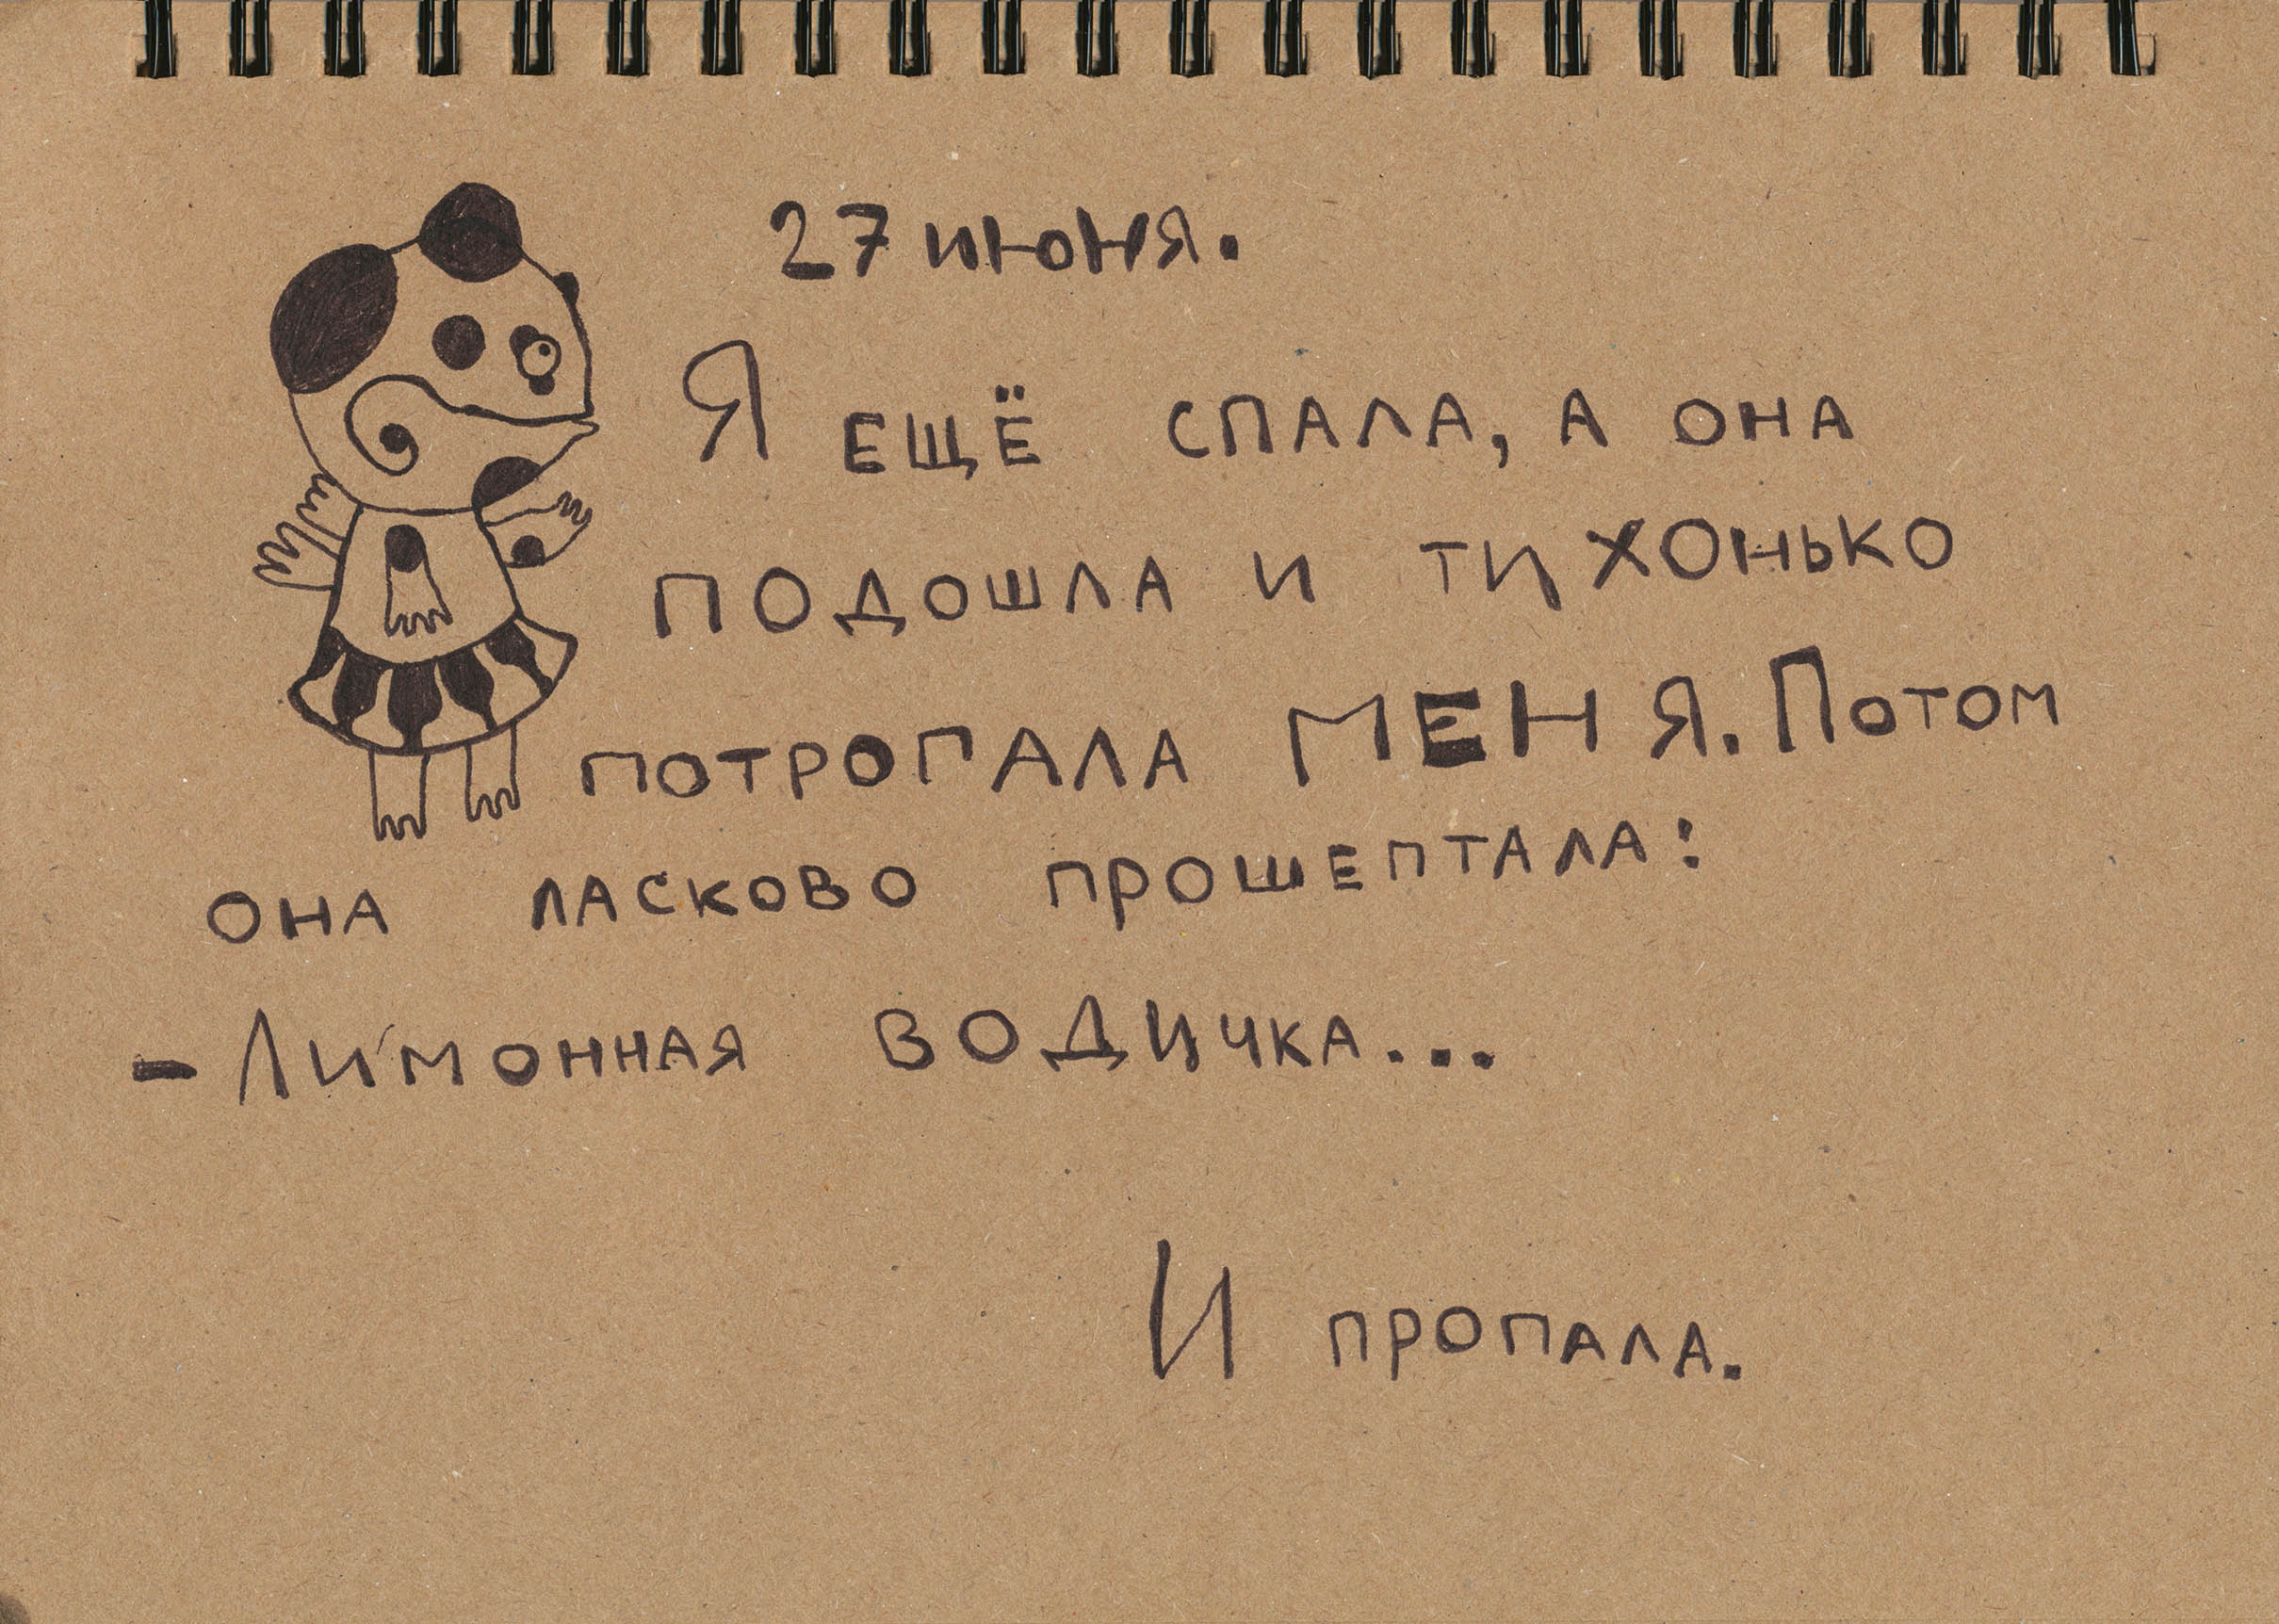 27 июня.
Я ещё спала, а она
подошла и тихонько
потропала меня. Потом
она ласково прошептала:
- Лимонная водичка...
И пропала.